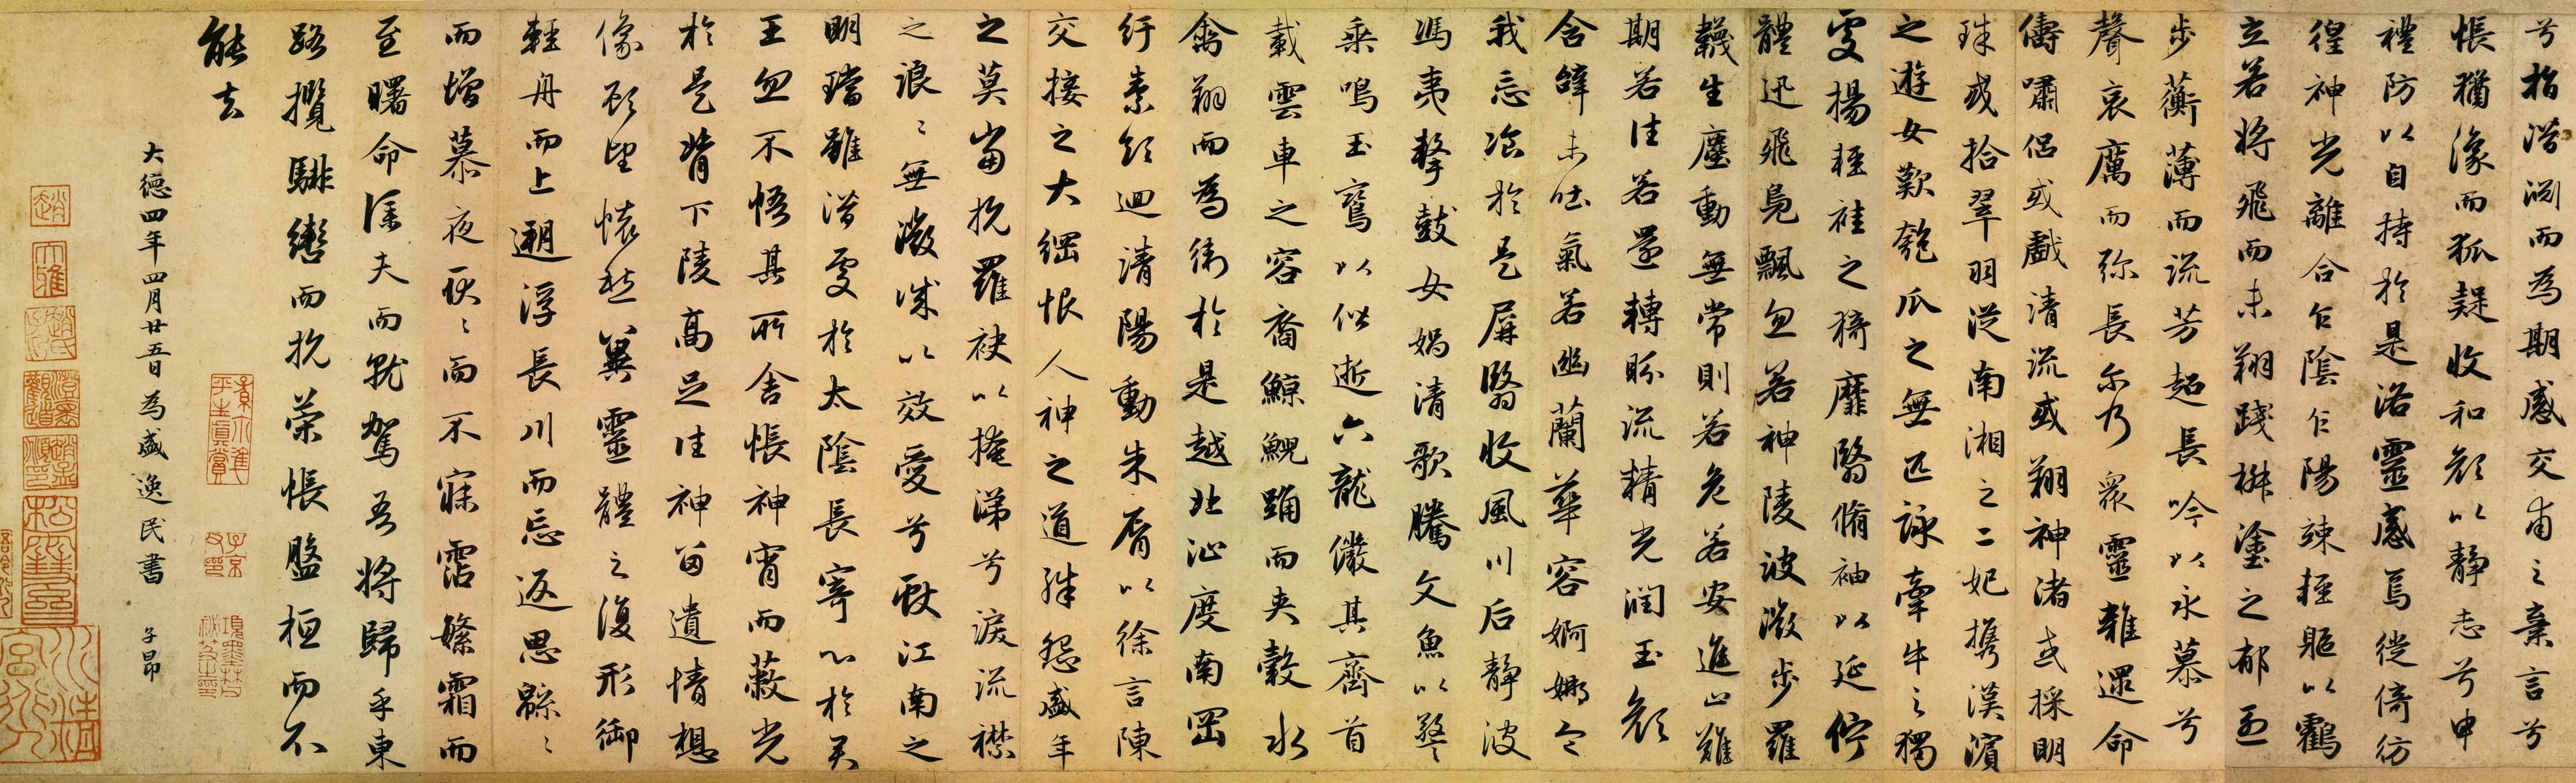 兮指潛淵而為期感交甫之棄言兮
悵猶豫而狐疑收和顏以靜志兮申
禮防以自持於是洛靈感焉徙倚彷
徨神光離合乍陰乍陽竦輕軀以鶴
立若將飛而未翔踐椒塗之郁烈
步蘅薄而流芳超長吟以永慕兮
聲哀厲而弥長尔乃眾靈雜遝命
儔嘯侶或戲清流或翔神渚或採明
珠或拾翠羽從南湘之二妃攜漢濱
之遊女歎匏瓜之無匹詠牽牛之獨
處揚輕袿之猗靡翳脩袖以延佇
體迅飛鳧飄忽若神陵波微步羅
韈生塵動無常則若危若安進止難
期若往若還轉眄流精光潤玉顏
含辭未吐氣若幽蘭華容婀娜令
我忘飡於是屏翳收風川后靜波
馮夷擊鼓女媧清歌騰文魚以警
乘鳴玉鸞以偕逝六龍儼其齊首
載雲車之容裔鯨鯢踊而夾轂水
禽翔而為衛於是越北沚度南岡
紆素領迴清陽動朱脣以徐言陳
交接之大綱恨人神之道殊怨盛年
之莫當抗羅袂以掩涕兮淚流襟
之浪〻無微誠以效愛兮獻江南之
明璫雖潛處於太陰長寄心於君
王忽不悟其所舍悵神宵而蔽光
於是背下陵高足往神留遺情想
像顧望懷愁冀靈體之復形御
輕舟而上遡浮長川而忘返思緜〻
而增慕夜耿〻而不寐霑繁霜而
至曙命僕夫而就駕吾將歸乎東
路攬騑轡而抗策悵盤桓而不
能去
大德四年四月廿五日為盛逸民書 子昂
平生真賞
子京父印
趙
大雅
趙氏子昂
澄懷觀道